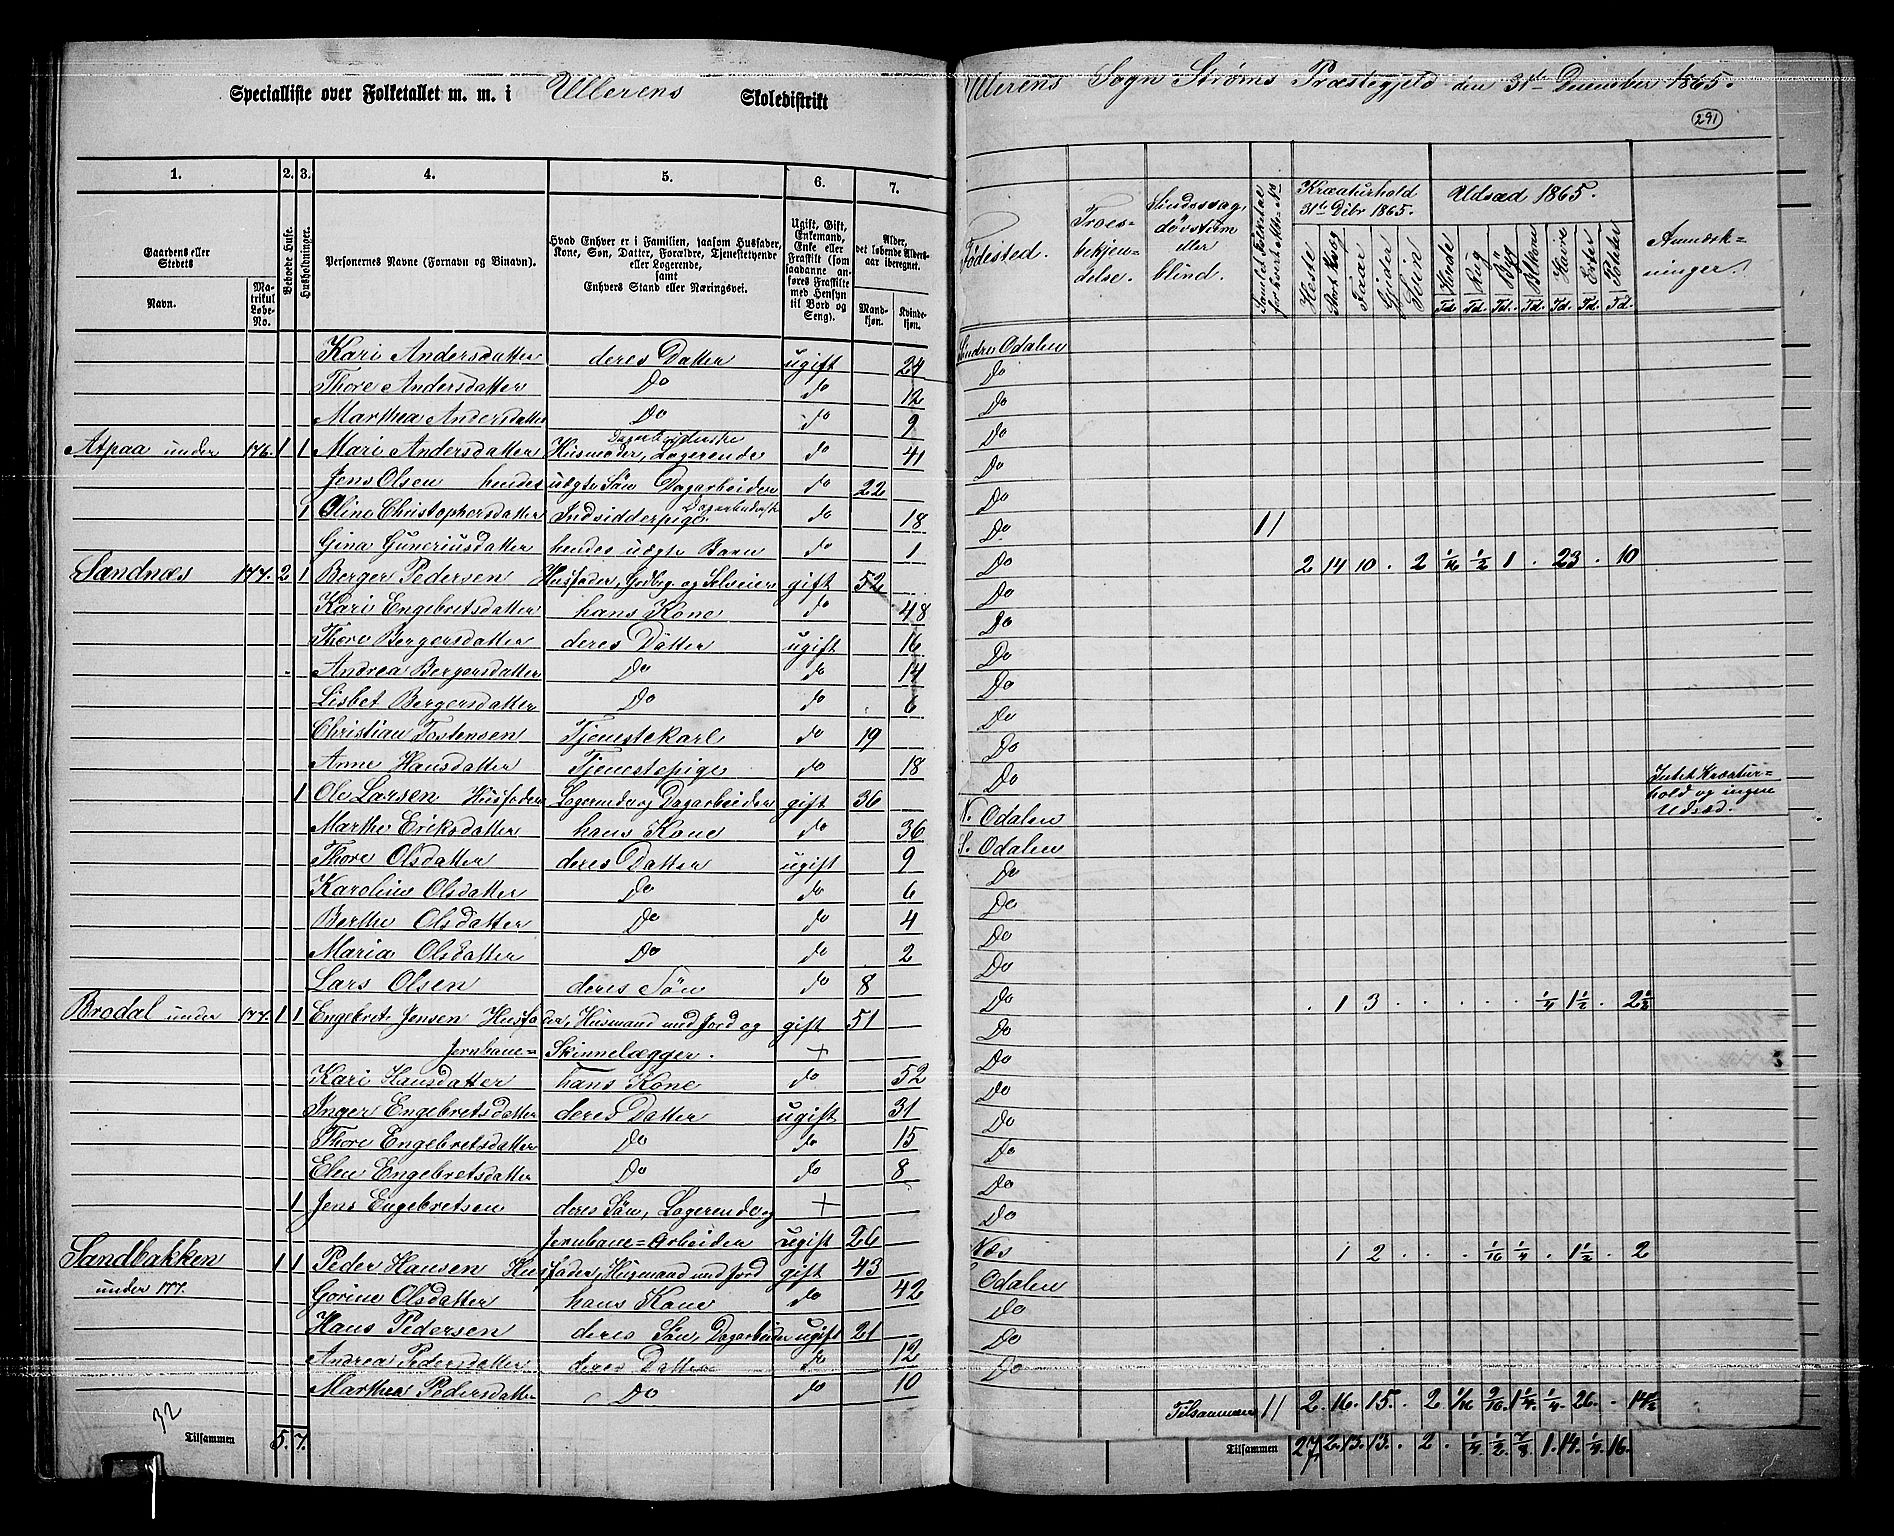 Specialliste over Folketallet m. m. i Ullerens Skoledistrikt
1. 2. 3. 4. 5. 6. 7.
Gaardens eller Stedets
Navn.
Matrikul Løbe-No.
Beboede Huse.
Husholdninger.
Personernes Navne (Fornavn og Binavn).
Hvad Enhver er i Familien, saasom Husfader, Kone, Søn, Datter, Forældre, Tjenestetyende eller Logerende, samt Enhvers Stand eller Næringsvei.
Ugift, Gift, Enkemand, Enke eller Fraskilt (som saadanne anføres Fraskilte med Hensyn til Bord og Seng).
Alder, det løbende Aldersaar iberegnet.
Mandkjøn. Kvindekjøn.
Kari Andersdatter deres Datter ugift 24
Thore Andersdatter Do do 12
Marthea Andersdatter Do do 9
Atpaa under 176. 1 1 Mari Andersdatter Husmoder, Logerende Dagarbeiderske do 41
Jens Olsen hendes uægte Søn Dagarbeider do 22
1 Oline Christophersdatter Indsidderpige Dagarbeiderske do 18
Gina Guneriusdatter hendes uægte Barn do 1
Sandnæs 177. 2 1 Berger Pedersen Husfader, Gdbrg. og Selveier gift 52
Kari Engebretsdatter hans Kone do 48
Thore Bergersdatter deres Datter ugift 16
Andrea Bergersdatter Do do 14
Lisbet Bergersdatter Do do 6
Christian Tostensen Tjenestekarl do 19
Anne Hansdatter Tjenestepige do 18
1 Ole Larsen Husfader Logerende og Dagarbeider gift 36
Marthe Eriksdatter hans Kone do 36
Thore Olsdatter deres Datter ugift 9
Karoline Olsdatter Do do 6
Berthe Olsdatter Do do 4
Maria Olsdatter Do do 2
Lars Olsen deres Søn do 8
Brodal under 177. 1 1 Engebret Jensen Husfader, Husmand med Jord og gift 51
Jernbane= Skinnelægger. +
Kari Hansdatter hans Kone do 52
Inger Engebretsdatter deres Datter ugift 31
Thore Engebretsdatter Do do 15
Elen Engebretsdatter Do do 8
1 Jens Engebretsen deres Søn, Logerende og +
Jernbane=Arbeider ugift 26
Sandbakken 1 1 Peder Hansen Husfader, Husmand med Jord gift 43
under 177. Gorine Olsdatter hans Kone do 42
Hans Pedersen deres Søn Dagarbeider ugift 21
Andrea Pedersdatter deres Datter do 12
Marthea Pedersdatter Do do 10
32
Tilsammen 5. 7.
Ullerens Sogn Strøms Præstegjeld den 31te December 1865.
291
Fødested.
Troesbekjendelse.
Sindssvag, døvstum eller blind.
Kreaturhold 31te Dcbr 1865.
Heste
Stort Kvæg
Faar
Gjeder
Svin
Udsæd 1865.
Hvede Td.
Rug Td.
Byg Td.
Blkorn Td.
Havre Td.
Erter Td.
Poteter Td.
Anmærkninger.
Søndre Odalen
Do
Do
Do
Do
Do
Do 11
Do 2 14 10 . 2 1/16 1/2 1 . 23 . 10
Do
Do
Do
Do
Do
Do
Do
Intet Kreaturhold og ingen Udsæd.
N. Odalen
S. Odalen
Do
Do
Do
Do
Do . 1 3 . . . . . 1/4 1 1/2 . 2 1/2
Do
Do
Do
Do
Do
Do
Do
Næs 1 2 . . . 1/16 1/4 . 1 1/2 . 2
Odalen
Do
Do
Do
Tilsammen 11 2. 16. 15. . 2 1/16 9/16 1 1/4 1/4 26. . 14 1/2
Tilsammen 27 2. 13. 13. . 2 . 1/4 1/2 7/8 1. 14. 1/4 16.